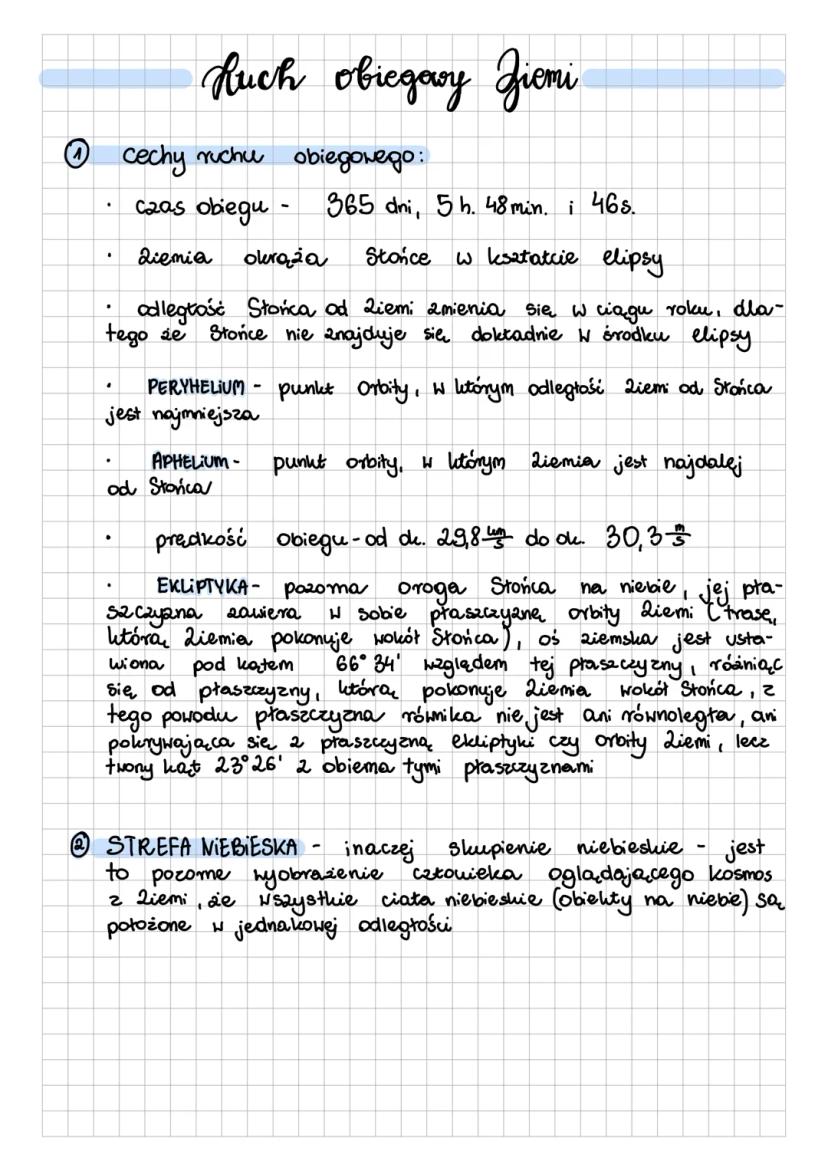 Ruch obiegowy Ziemi
① Cechy ruchu obiegowego:
· czas obiegu - 365 dni, 5 h. 48 min. i 46s.
· Ziemia okrąża Słońce w kształcie elipsy
· odległość Słońca od Ziemi zmienia się w ciągu roku, dla-
tego że Słońce nie znajduje się dokładnie w środku elipsy
· PERYHELIUM - punkt orbity, w którym odległość Ziemi od Słońca
jest najmniejsza
· APHELIUM - punkt orbity, w którym Ziemia jest najdalej
od Słońca
· prędkość obiegu - od ok. 29,8 km/s do ok. 30,3 m/s
· EKLIPTYKA - pozorna droga Słońca na niebie, jej pła-
szczyzna zawiera w sobie płaszczyznę orbity Ziemi (trasę,
którą Ziemia pokonuje wokół Słońca), oś ziemska jest usta-
wiona pod kątem 66° 34' względem tej płaszczyzny, różniąc
się od płaszczyzny, którą pokonuje Ziemia wokół Słońca, z
tego powodu płaszczyzna równika nie jest ani równoległa, ani
pokrywająca się z płaszczyzną ekliptyki czy orbity Ziemi, lecz
tworzy kąt 23° 26' z obiema tymi płaszczyznami
② STREFA NIEBIESKA - inaczej skupienie niebieskie - jest
to pozorne wyobrażenie człowieka oglądającego kosmos
z Ziemi, że wszystkie ciała niebieskie (obiekty na niebie) są
położone w jednakowej odległości